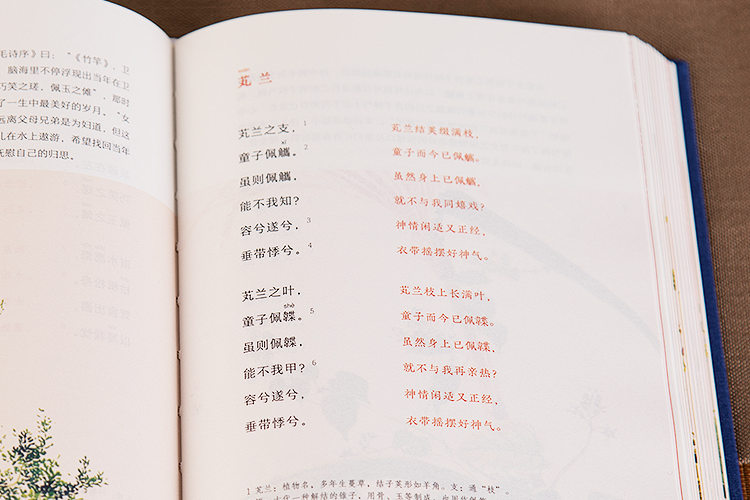 毛诗序》曰:“《竹竿》,卫
脑海里不停浮现当年在卫
巧笑之瑳,佩玉之傩”,那时
了一生中最美好的岁月。“女
远离父母兄弟是为妇道,但这
儿在水上遨游,希望找回当年
抚慰自己的归思。
芄兰
芄兰之支,1 芄兰结荚缀满枝。
xī
童子佩觿。2 童子而今已佩觿。
虽则佩觿, 虽然身上已佩觿,
能不我知? 就不与我同嬉戏?
容兮遂兮,3 神情闲适又正经,
垂带悸兮。4 衣带摇摆好神气。
芄兰之叶, 芄兰枝上长满叶,
shè
童子佩韘。5 童子而今已佩韘。
虽则佩韘, 虽然身上已佩韘,
能不我甲?6 就不与我再亲热?
容兮遂兮, 神情闲适又正经,
垂带悸兮。 衣带摇摆好神气。
1 芄兰:植物名,多年生蔓草,结子荚形如羊角。支:通“枝”。
古代一种解结的锥子,用骨、玉等制成